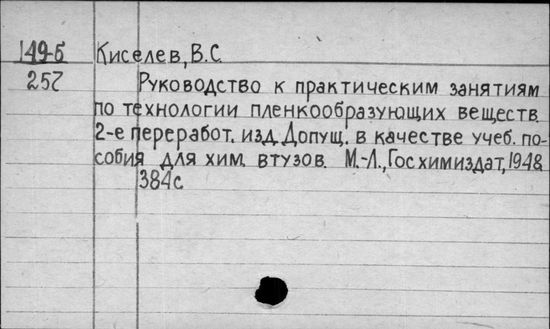 149-б Киселев, В.С.
257 Руководство к практическим занятиям
по технологии пленкообразующих веществ.
2-е переработ. изд. Допущ. в качестве учеб. по-
собия для хим. втузов. М.-Л., Госхимиздат, 1948.
384с.